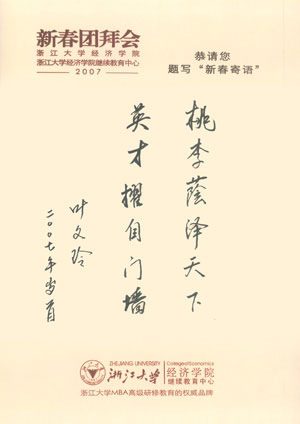 新春团拜会
浙江大学经济学院
浙江大学经济学院继续教育中心
2007
恭请您
题写“新春寄语”
桃李荫泽天下
英才擢自门墙
叶文玲
二〇〇七年岁首
ZHEJIANG UNIVERSITY
浙江大学
College of Economics
经济学院
继续教育中心
浙江大学MBA高级研修教育的权威品牌